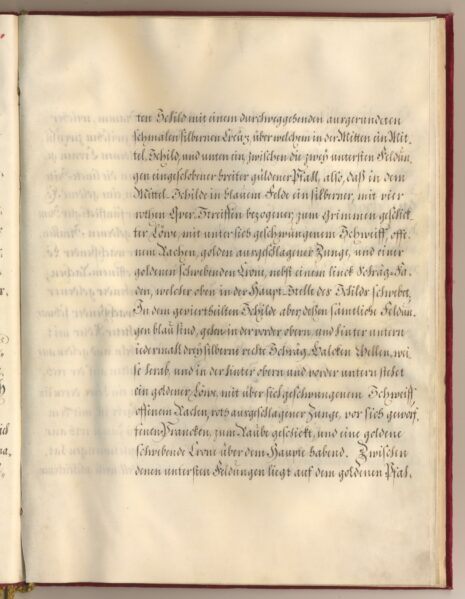 ten Schild mit einem durchweggehenden ausgerundeten
schmalen silbernen Creüz, über welchem in der Mitten ein Mit-
tel-Schild, und unten ein zwischen die zwey untersten Feldun-
gen eingeschobener breiter güldener Pfahl, also, daß in dem
Mittel-Schilde in blauem Felde ein silberner, mit vier
rothen Quer-Streiffen bezogener, zum Grimmen geschick-
ter Löwe, mit unter sich geschwungenem Schweiff, offe-
nem Rachen, golden ausgeschlagener Zunge, und einer
goldenen schwebenden Crone, nebst einem linck Schräg-Fa-
den, welcher oben in der Haupt-Stelle des Schilds schwebet,
In dem geviertheilten Schilde aber, dessen sämtliche Feldun-
gen blau sind, gehen in der vorder obern und hinter untern
iedermahl drey silberne rechte Schräg-Balcken Wellen-wei-
se herab, und in der hinter obern und vorder untern stehet
ein goldener Löwe, mit über sich geschwungenem Schweiff,
offenem Rachen, roth ausgeschlagener Zunge, vor sich geworf-
fenen Prancken, zum Raube geschickt, und eine goldene
schwebende Crone über dem Haupte habend. Zwischen
denen untersten Feldungen liegt auf dem goldenen Pfal,